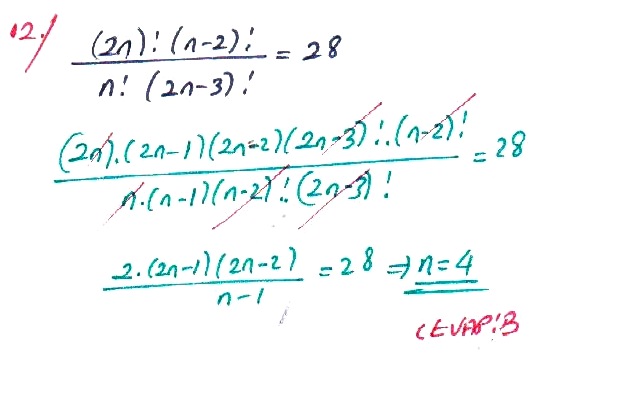 12.)
(2n)! (n-2)! / n! (2n-3)! = 28
(2n).(2n-1)(2n-2)(2n-3)!.(n-2)! / n.(n-1)(n-2)!.(2n-3)! = 28
2.(2n-1)(2n-2) / n-1 = 28 ⇒ n=4
CEVAP:B